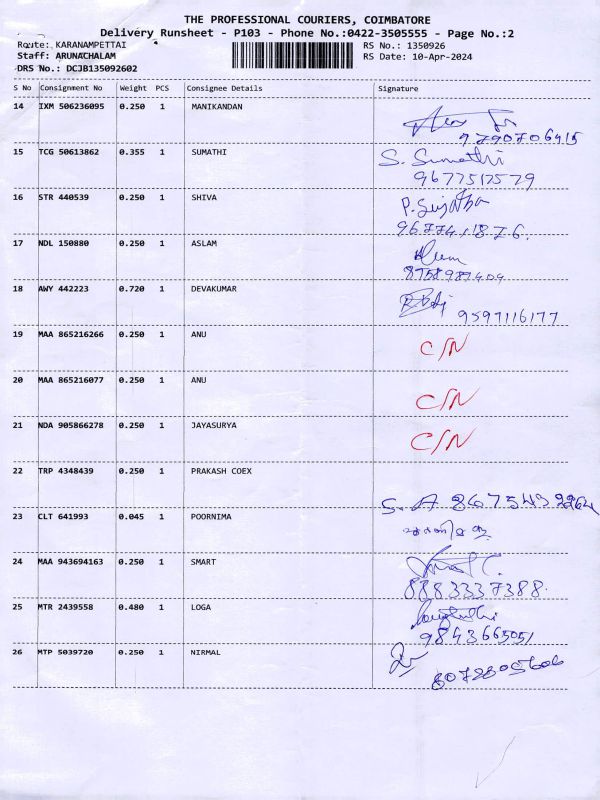 THE PROFESSIONAL COURIERS, COIMBATORE
Delivery Runsheet - P103 - Phone No.:0422-3505555 - Page No.:2
Route: KARANAMPETTAI RS No.: 1350926
Staff: ARUNACHALAM RS Date: 10-Apr-2024
DRS No.: DCJB135092602
S No Consignment No Weight PCS Consignee Details Signature
14 IXM 506236095 0.250 1 MANIKANDAN
9790706415
15 TCG 50613862 0.355 1 SUMATHI S. Sumathi
9677517579
16 STR 440539 0.250 1 SHIVA P. Sujatha
17 NDL 150880 0.250 1 ASLAM
18 AWY 442223 0.720 1 DEVAKUMAR
9597116177
19 MAA 865216266 0.250 1 ANU C/N
20 MAA 865216077 0.250 1 ANU C/N
21 NDA 905866278 0.250 1 JAYASURYA C/N
22 TRP 4348439 0.250 1 PRAKASH COEX
S. A
23 CLT 641993 0.045 1 POORNIMA
24 MAA 943694163 0.250 1 SMART
8883337388
25 MTR 2439558 0.480 1 LOGA
9843665051
26 MTP 5039720 0.250 1 NIRMAL
8072805606